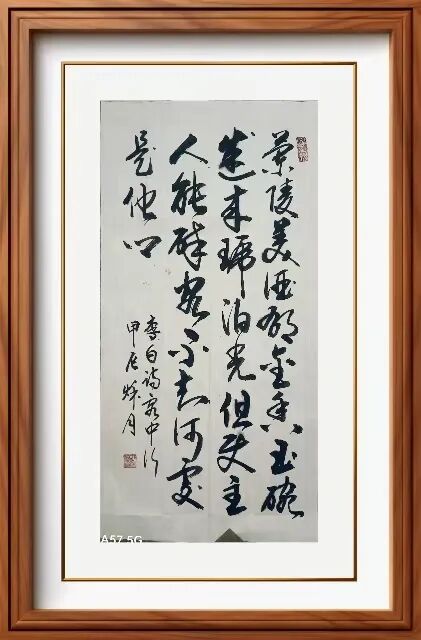 兰陵美酒郁金香玉碗
盛来琥珀光但使主
人能醉客不知何处
是他乡
李白诗客中行
甲辰秋月
A57 5G